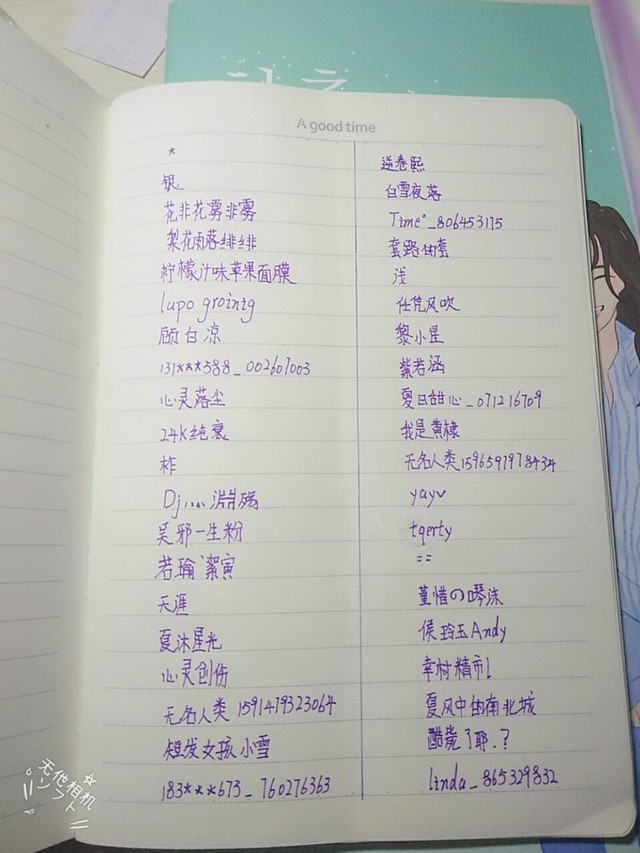 A good time
*
银
花非花雾非雾
梨花雨落绯绯
柠檬汁味苹果面膜
lupo groinig
顾白凉
131***588_002601003
心灵落尘
24K纯哀
柞
Dj....渊殇
吴邪一生粉
若瑜絮寅
天涯
夏沐星光
心灵创伤
无名人类 1591479323064
短发女孩小雪
183***673_760276363
逆卷熙
白雪夜落
Time°_806453175
套路何套
浅
任凭风吹
黎小星
紫若涵
夏日甜心_071216709
我是黄棣
无名人类1596597978434
yayv
tqerty
==
堇惜の噖沫
侯玲玉Andy
幸村精市l
夏风中的南北城
酷毙了耶.?
linda_865329832
无他相机
ソフト